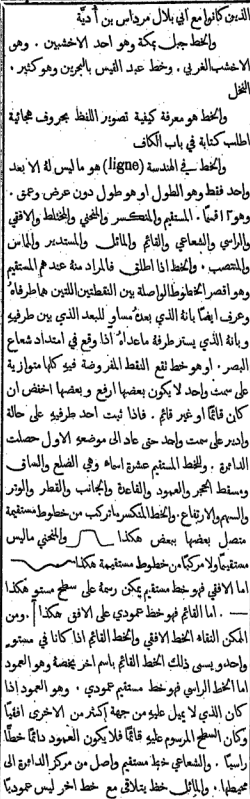 الذين كانوا مع ابي بلال مرداس بن أُدَيَّة
والخط جبل بمكة وهو احد الاخشبين . وهو
الاخشب الغربي . وخط عبد القيس بالبحرين وهو كثير
النخل
والخط هو معرفة كيفية تصوير اللفظ بحروف هجائية
اطلب كتابة في باب الكاف
والخط في الهندسة (ligne) هو ما ليس لهُ الا بعد
واحد فقط وهو الطول او هو طول دون عرض وعمق .
وهو اقسام . المستقيم والمنكسر والمنحني والمختلط والافقي
والراسي والشعاعي والقائم والمائل والمستدير والمماس
والمنتصب . والخط اذا اطلق فالمراد منهُ عندهم المستقيم
وهو اقصر الخطوط الواصلة بين النقطتين اللتين هما طرفاهُ
وعرف ايضًا بانهُ الذي بعدهُ مساوٍ للبعد الذي بين طرفيهِ
وبانهُ الذي يستر طرفهُ ما عداهُ اذا وقع في امتداد شعاع
البصر . او هو خط تقع النقط المفروضة فيهِ كلها متوازية
على سمت واحد لا يكون بعضها ارفع وبعضها اخفض ان
كان قائمًا او غير قائم . فاذا ثبت احد طرفيهِ على حالة
وادير على سمت واحد حتى عاد الى موضعهِ الاول حصلت
الدائرة . وللخط المستقيم عشرة اسماء وهي الضلع والساق
ومسقط الحجر والعمود والقاعدة والجانب والقطر والوتر
والسهم والارتفاع . والخط المنكسر ما تركب من خطوط مستقيمة
متصل بعضها ببعض هكذا والمنحني ما ليس
مستقيمًا ولا مركبًا من خطوط مستقيمة هكذا
اما الافقي فهو خط مستقيم يمكن رسمهُ على سطح مستوٍ هكذا
— . اما القائم فهو خط عمودي على الافق هكذا | . ومن
الممكن التقاء الخط الافقي والخط القائم اذا كانا في مستوٍ
واحد ويسمى ذلك الخط القائم باسم اخر يخصهُ وهو العمود
اما الخط الراسي فهو خط مستقيم عمودي . وهو العمود اذا
كان الذي لا يميل عليهِ من جهة اكثر من الاخرى افقيًا
وكان السطح المرسوم عليهِ قائمًا فلا يكون العمود دائمًا خطًا
راسيًا . والشعاعي خط مستقيم واصل من مركز الدائرة الى
محيطها . والمائل خط يتلاقى مع خط اخر ليس عموديًا